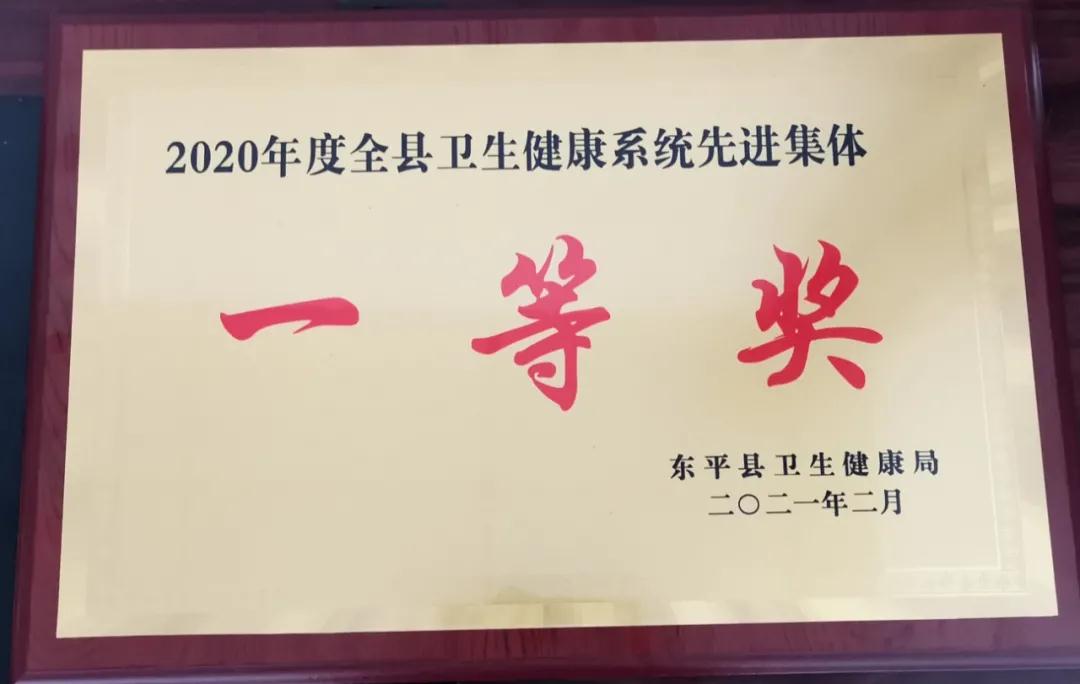 2020年度全县卫生健康系统先进集体
一等奖
东平县卫生健康局
二〇二一年二月